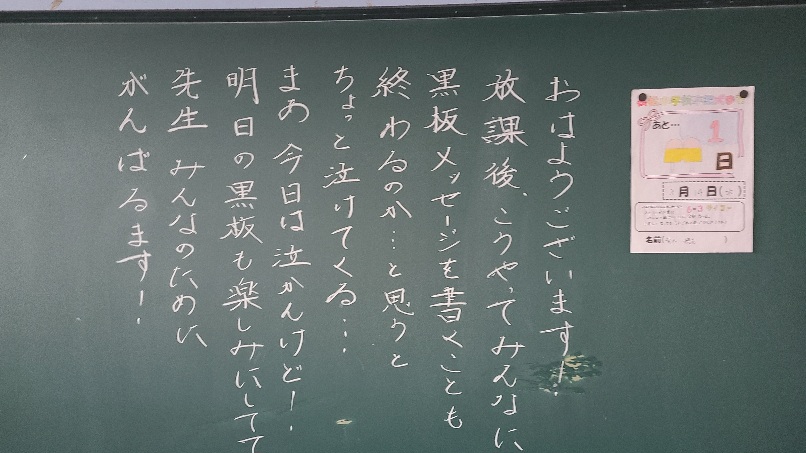 おはようございます！
放課後、こうやってみんなに
黒板メッセージを書くことも
終わるのか…と思うと
ちょっと泣けてくる…
まあ今日は泣かんけど！
明日の黒板も楽しみにしてて
先生みんなのために
がんばるます！
あと…
1
日
月 日(水)
名前( )